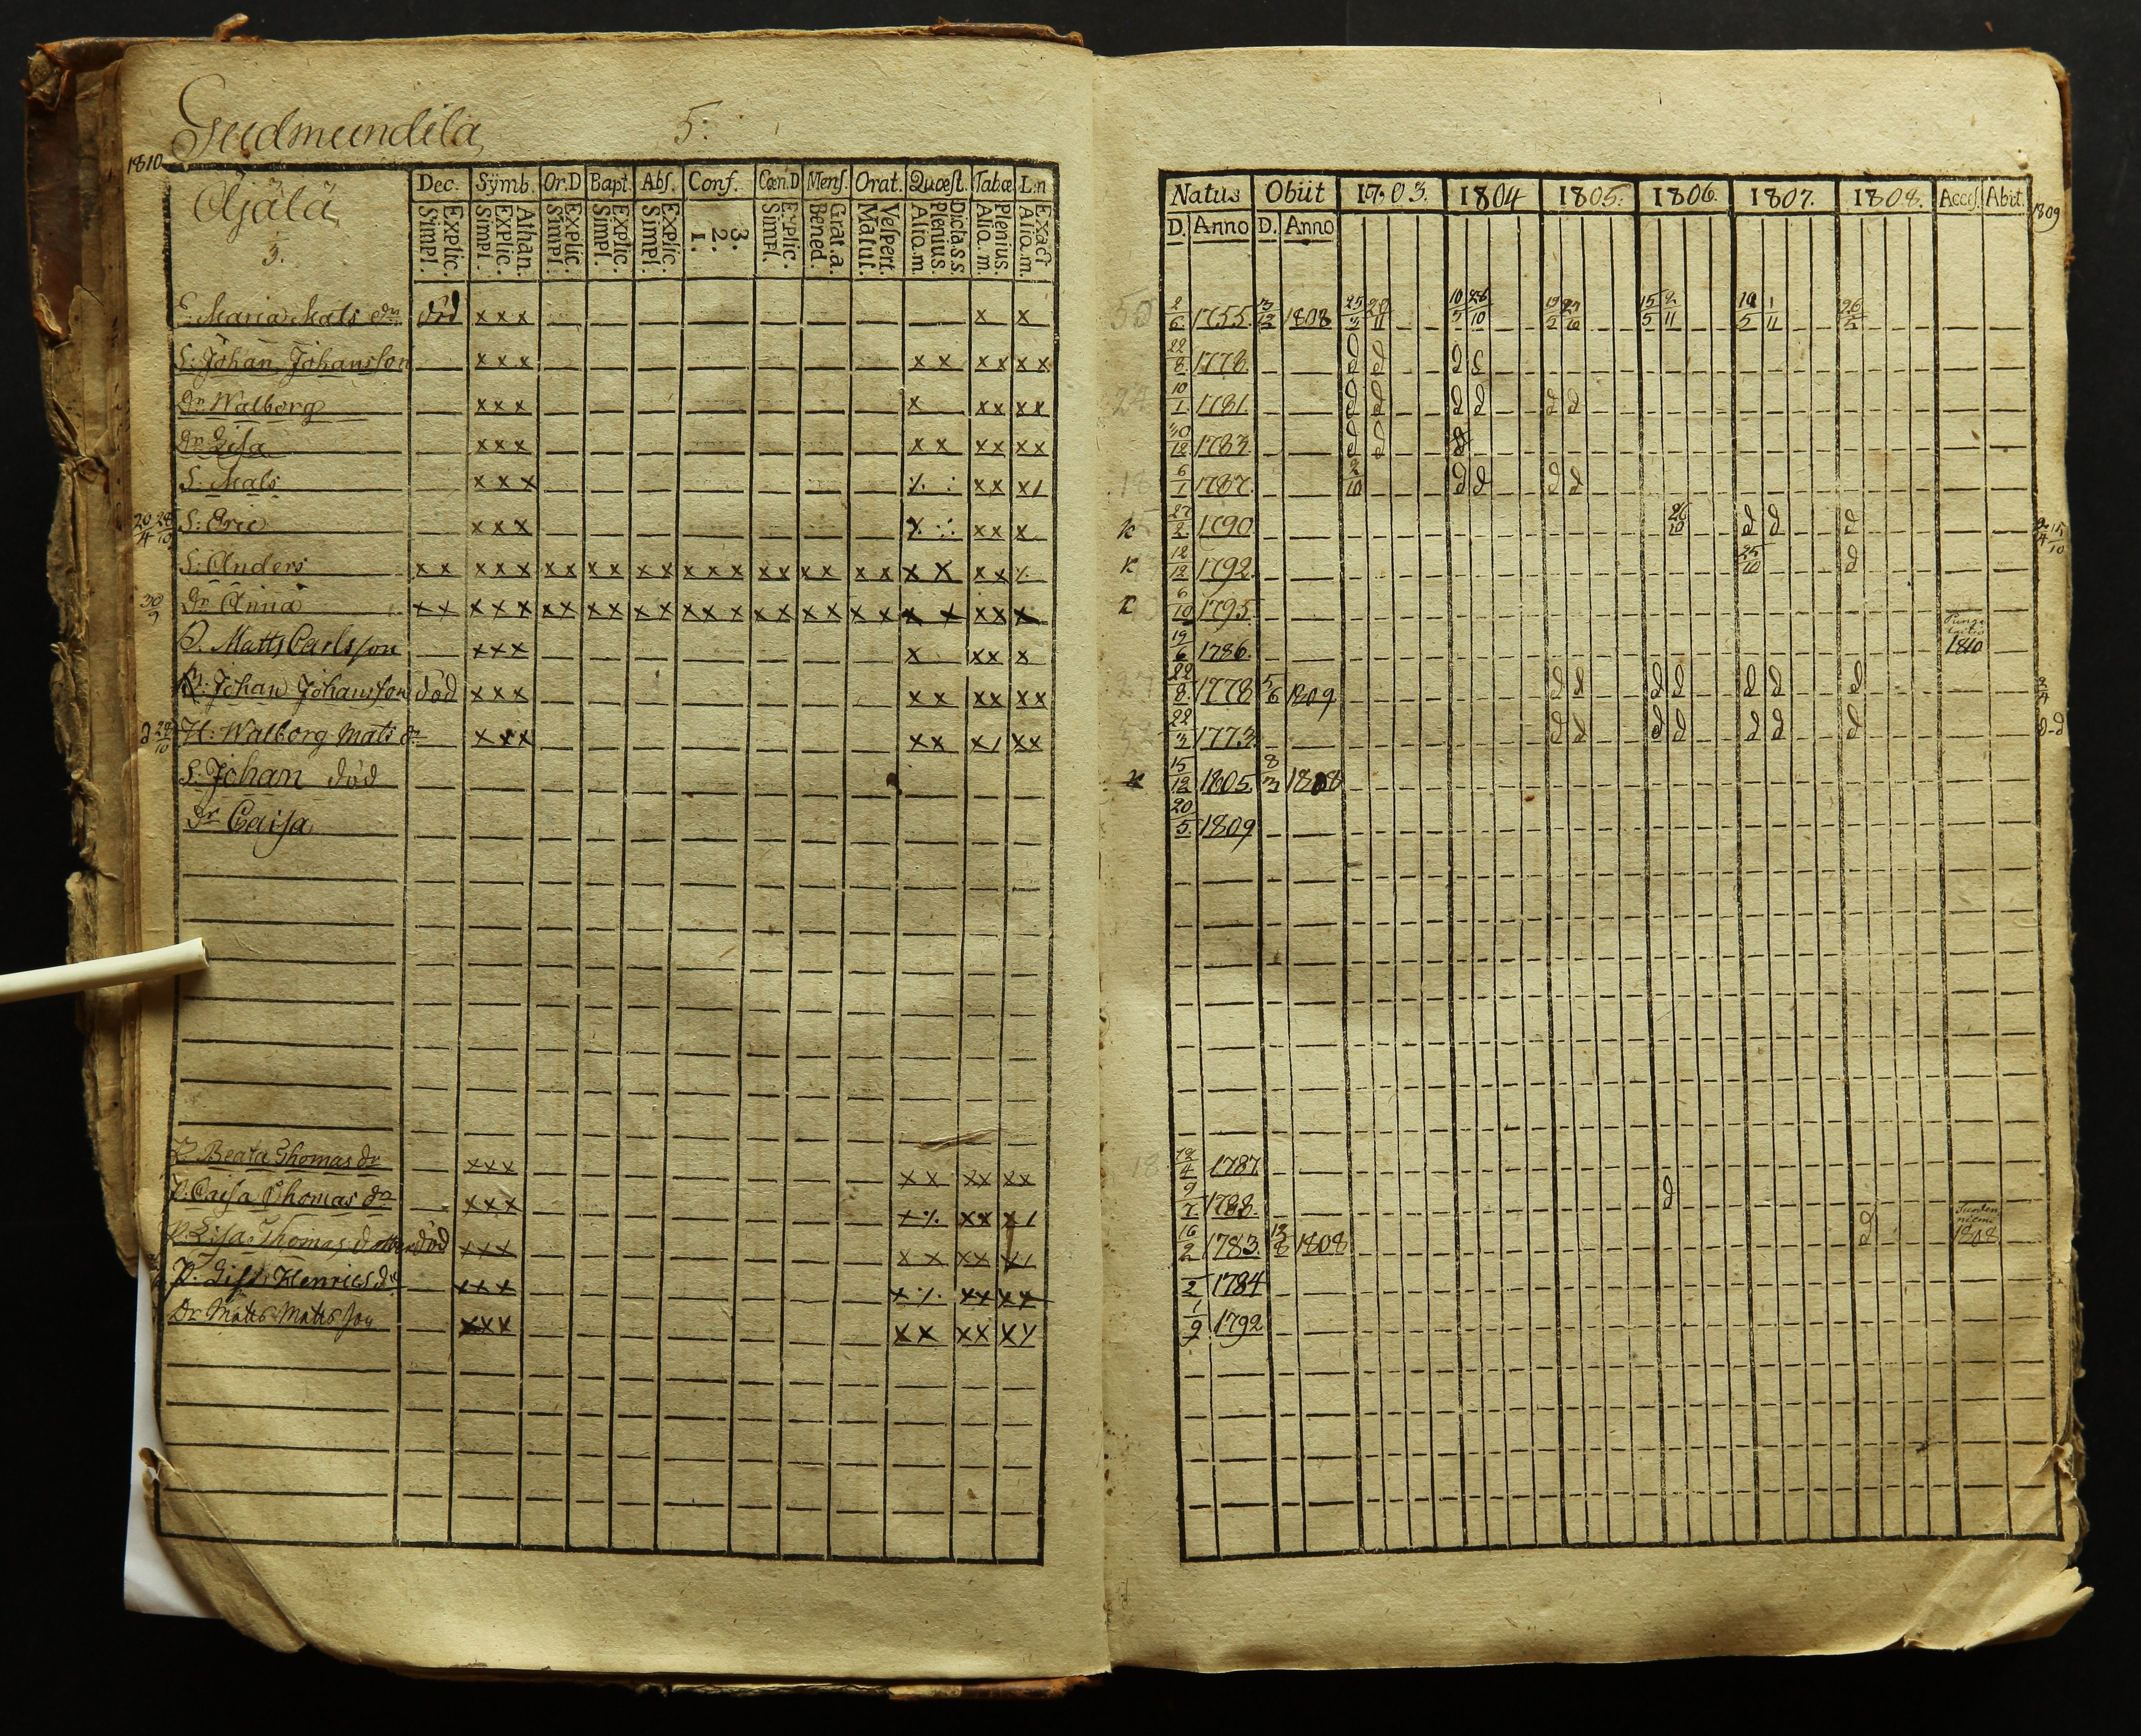 Gudmundila 5.
1810
Äjälä
3.
Dec. Symb. Or.D Bapt. Abſ. Conf. Cœn.D Menſ. Orat. Quœſt. Tabæ L.n
Explic. Simpl. Athan. Explic. Simpl. Explic. Simpl. Explic. Simpl. Explic. Simpl. 3. 2. 1. Explic. Simpl. Grat.a. Bened. Veſpert. Matut. Dicta.s.s Plenius. Alio.m. Plenius. Alio.m. Exact Alio.m.
Natus Obiit 1703. 1804 1805. 1806. 1807. 1808. Acceſ. Abit. 1809
D. Anno D. Anno
E. Maria Mats dr. död x x x x x 2/6 1755 13/12 1808 25/3 10/5 28/10 15/5 2/11 1/11 26/5
S: Johan Johansson x x x x x x x x x 22/8 1778. d d d
Dr. Walborg x x x x x x x x 10/1 1781. d d d d d d
Dr. Lisa x x x x x x x x x 30/12 1783. d d d
S. Mats x x x ٪ : x x x / 6/1 1787. 2/10 d d d d
20/4 28/10 S: Eric x x x x x x k 27/2 1790 26/10 d d d 15/10
S: Anders x x x x x x x x x x x x x x x x x x x x x x x x x x k 12/12 1792. 25/10 d
30/9 Dr. Anna x x x x x x x x x x x x x x x x x x x x x x x x x x k 6/10 1795
D. Matts Carlsson x x x x x x x 19/6 1786. 1810
Johan Johansson död x x x x x x x x x 22/8 1778 5/6 1809 d d d d d d d 2/4
H: Walborg Mats dr x x x x x x / x x 22/3 1773 d d d d d d d d-d
S: Johan död 15/12 1805 8/3 1808
Dr Caisa 20/5 1809
Beata Thomas dr x x x x x x x x x 18 12/4 1787
P. Caisa Thomas dr x x x x ٪ x x x / 9/7 1788. d
P. Lisa Thomas dotter död x x x x x x x x / 16/2 1783. 13/8 1808 d 1808
P. Lisa Henrics dr x x x x ٪ x x x x /2 1784
Dr Matts Mattsson x x x x x x x x x 1/9 1792